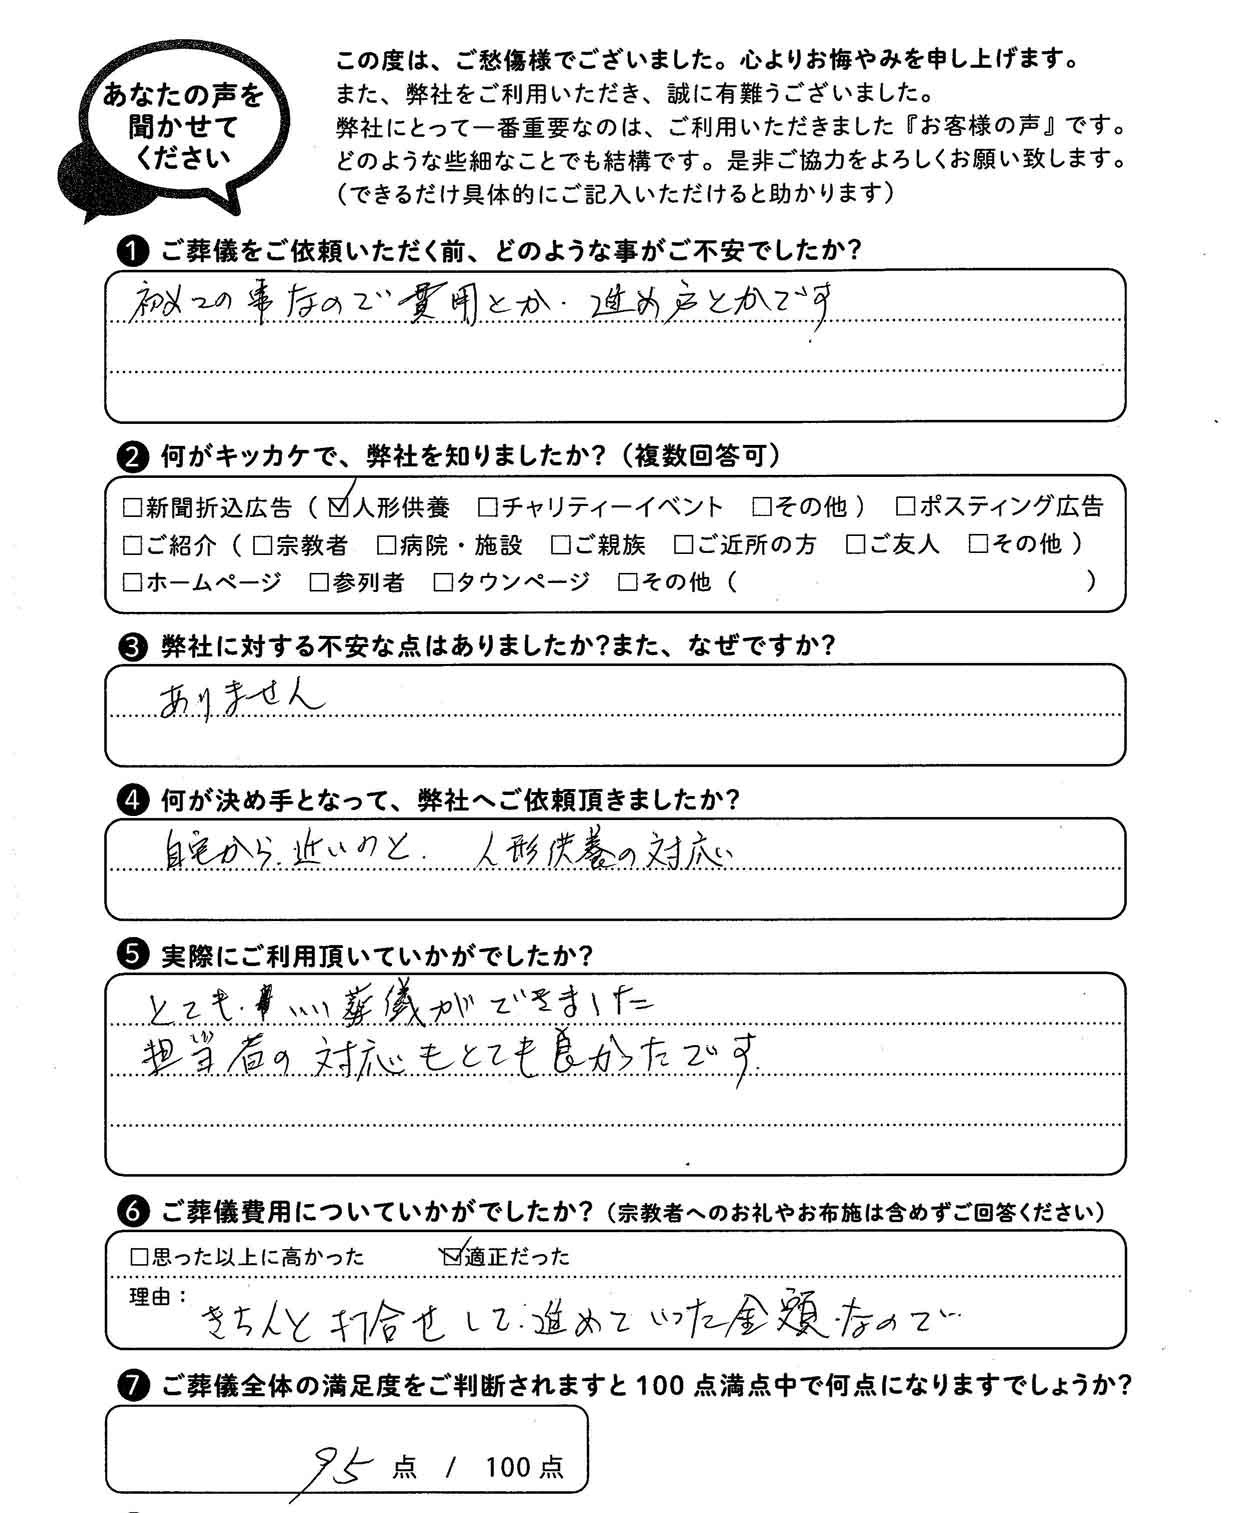 あなたの声を
聞かせて
ください
この度は、ご愁傷様でございました。心よりお悔やみを申し上げます。
また、弊社をご利用いただき、誠に有難うございました。
弊社にとって一番重要なのは、ご利用いただきました『お客様の声』です。
どのような些細なことでも結構です。是非ご協力をよろしくお願い致します。
（できるだけ具体的にご記入いただけると助かります）
❶ ご葬儀をご依頼いただく前、どのような事がご不安でしたか？
初めての事なので費用とか・進め方とかです
❷ 何がキッカケで、弊社を知りましたか？（複数回答可）
□新聞折込広告（ ☑人形供養 □チャリティーイベント □その他） □ポスティング広告
□ご紹介（ □宗教者 □病院・施設 □ご親族 □ご近所の方 □ご友人 □その他 ）
□ホームページ □参列者 □タウンページ □その他（ ）
❸ 弊社に対する不安な点はありましたか？また、なぜですか？
ありません
❹ 何が決め手となって、弊社へご依頼頂きましたか？
自宅から近いのと. 人形供養の対応
❺ 実際にご利用頂いていかがでしたか？
とても いい葬儀ができました
担当者の対応もとても良かったです.
❻ ご葬儀費用についていかがでしたか？（宗教者へのお礼やお布施は含めずご回答ください）
□思った以上に高かった ☑適正だった
理由：
きちんと打合せして進めていった金額なので
❼ ご葬儀全体の満足度をご判断されますと100点満点中で何点になりますでしょうか？
95 点 / 100点